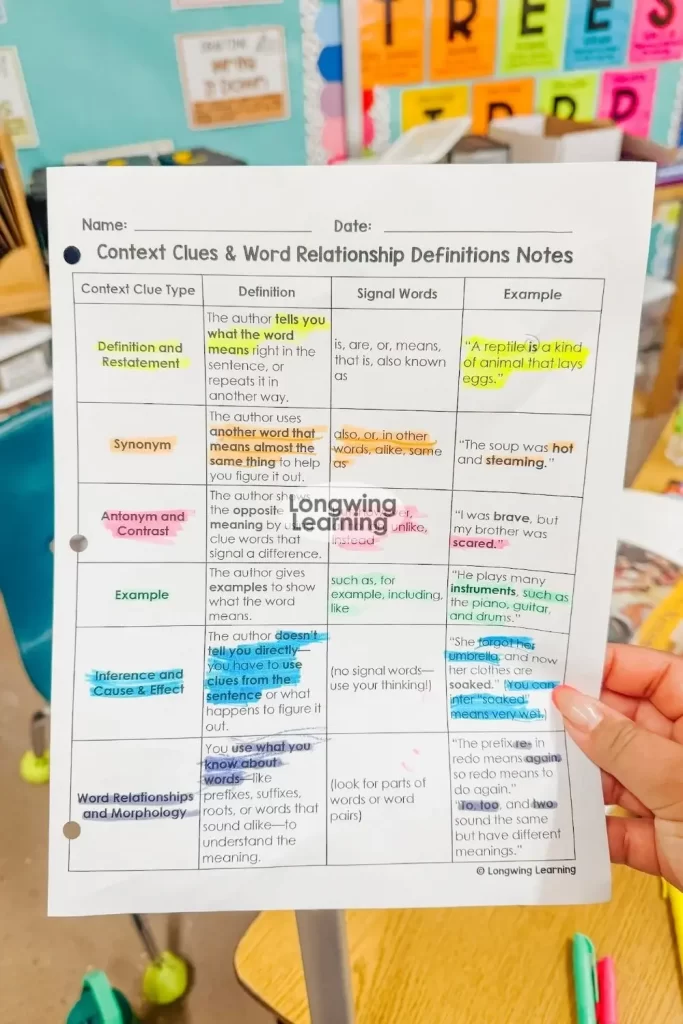 T R E E S
Name: Date:
Context Clues & Word Relationship Definitions Notes
Context Clue Type Definition Signal Words Example
Definition and
Restatement
The author tells you
what the word
means right in the
sentence, or
repeats it in
another way.
is, are, or, means,
that is, also known
as
"A reptile is a kind
of animal that lays
eggs."
Synonym
The author uses
another word that
means almost the
same thing to help
you figure it out.
also, or, in other
words, alike, same
as
"The soup was hot
and steaming."
Antonym and
Contrast
The author shows
the opposite
meaning by
clue words that
signal a difference.
unlike,
instead
"I was brave, but
my brother was
scared."
Longwing
Learning
Example
The author gives
examples to show
what the word
means.
such as, for
example, including,
like
"He plays many
instruments, such as
the piano, guitar,
and drums."
Inference and
Cause & Effect
The author doesn't
tell you directly—
you have to use
clues from the
sentence or what
happens to figure it
out.
(no signal words—
use your thinking!)
"She forgot her
umbrella, and now
her clothes are
soaked." (You can
infer "soaked"
means very wet.)
Word Relationships
and Morphology
You use what you
know about
words—like
prefixes, suffixes,
roots, or words that
sound alike—to
understand the
meaning.
(look for parts of
words or word
pairs)
"The prefix re- in
redo means again,
so redo means to
do again."
"To, too, and two
sound the same
but have different
meanings."
© Longwing Learning